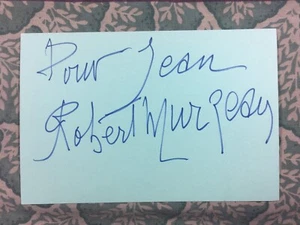 Pour Jean
Robert Murzeau